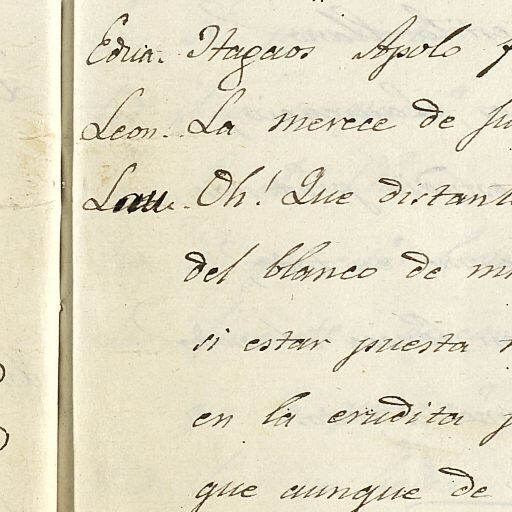 Edua. Hagaos Apolo
Leon. La merece de
Lau. Oh! Que distant
del blanco de mi
si estar puesta
en la erudita
que aunque de